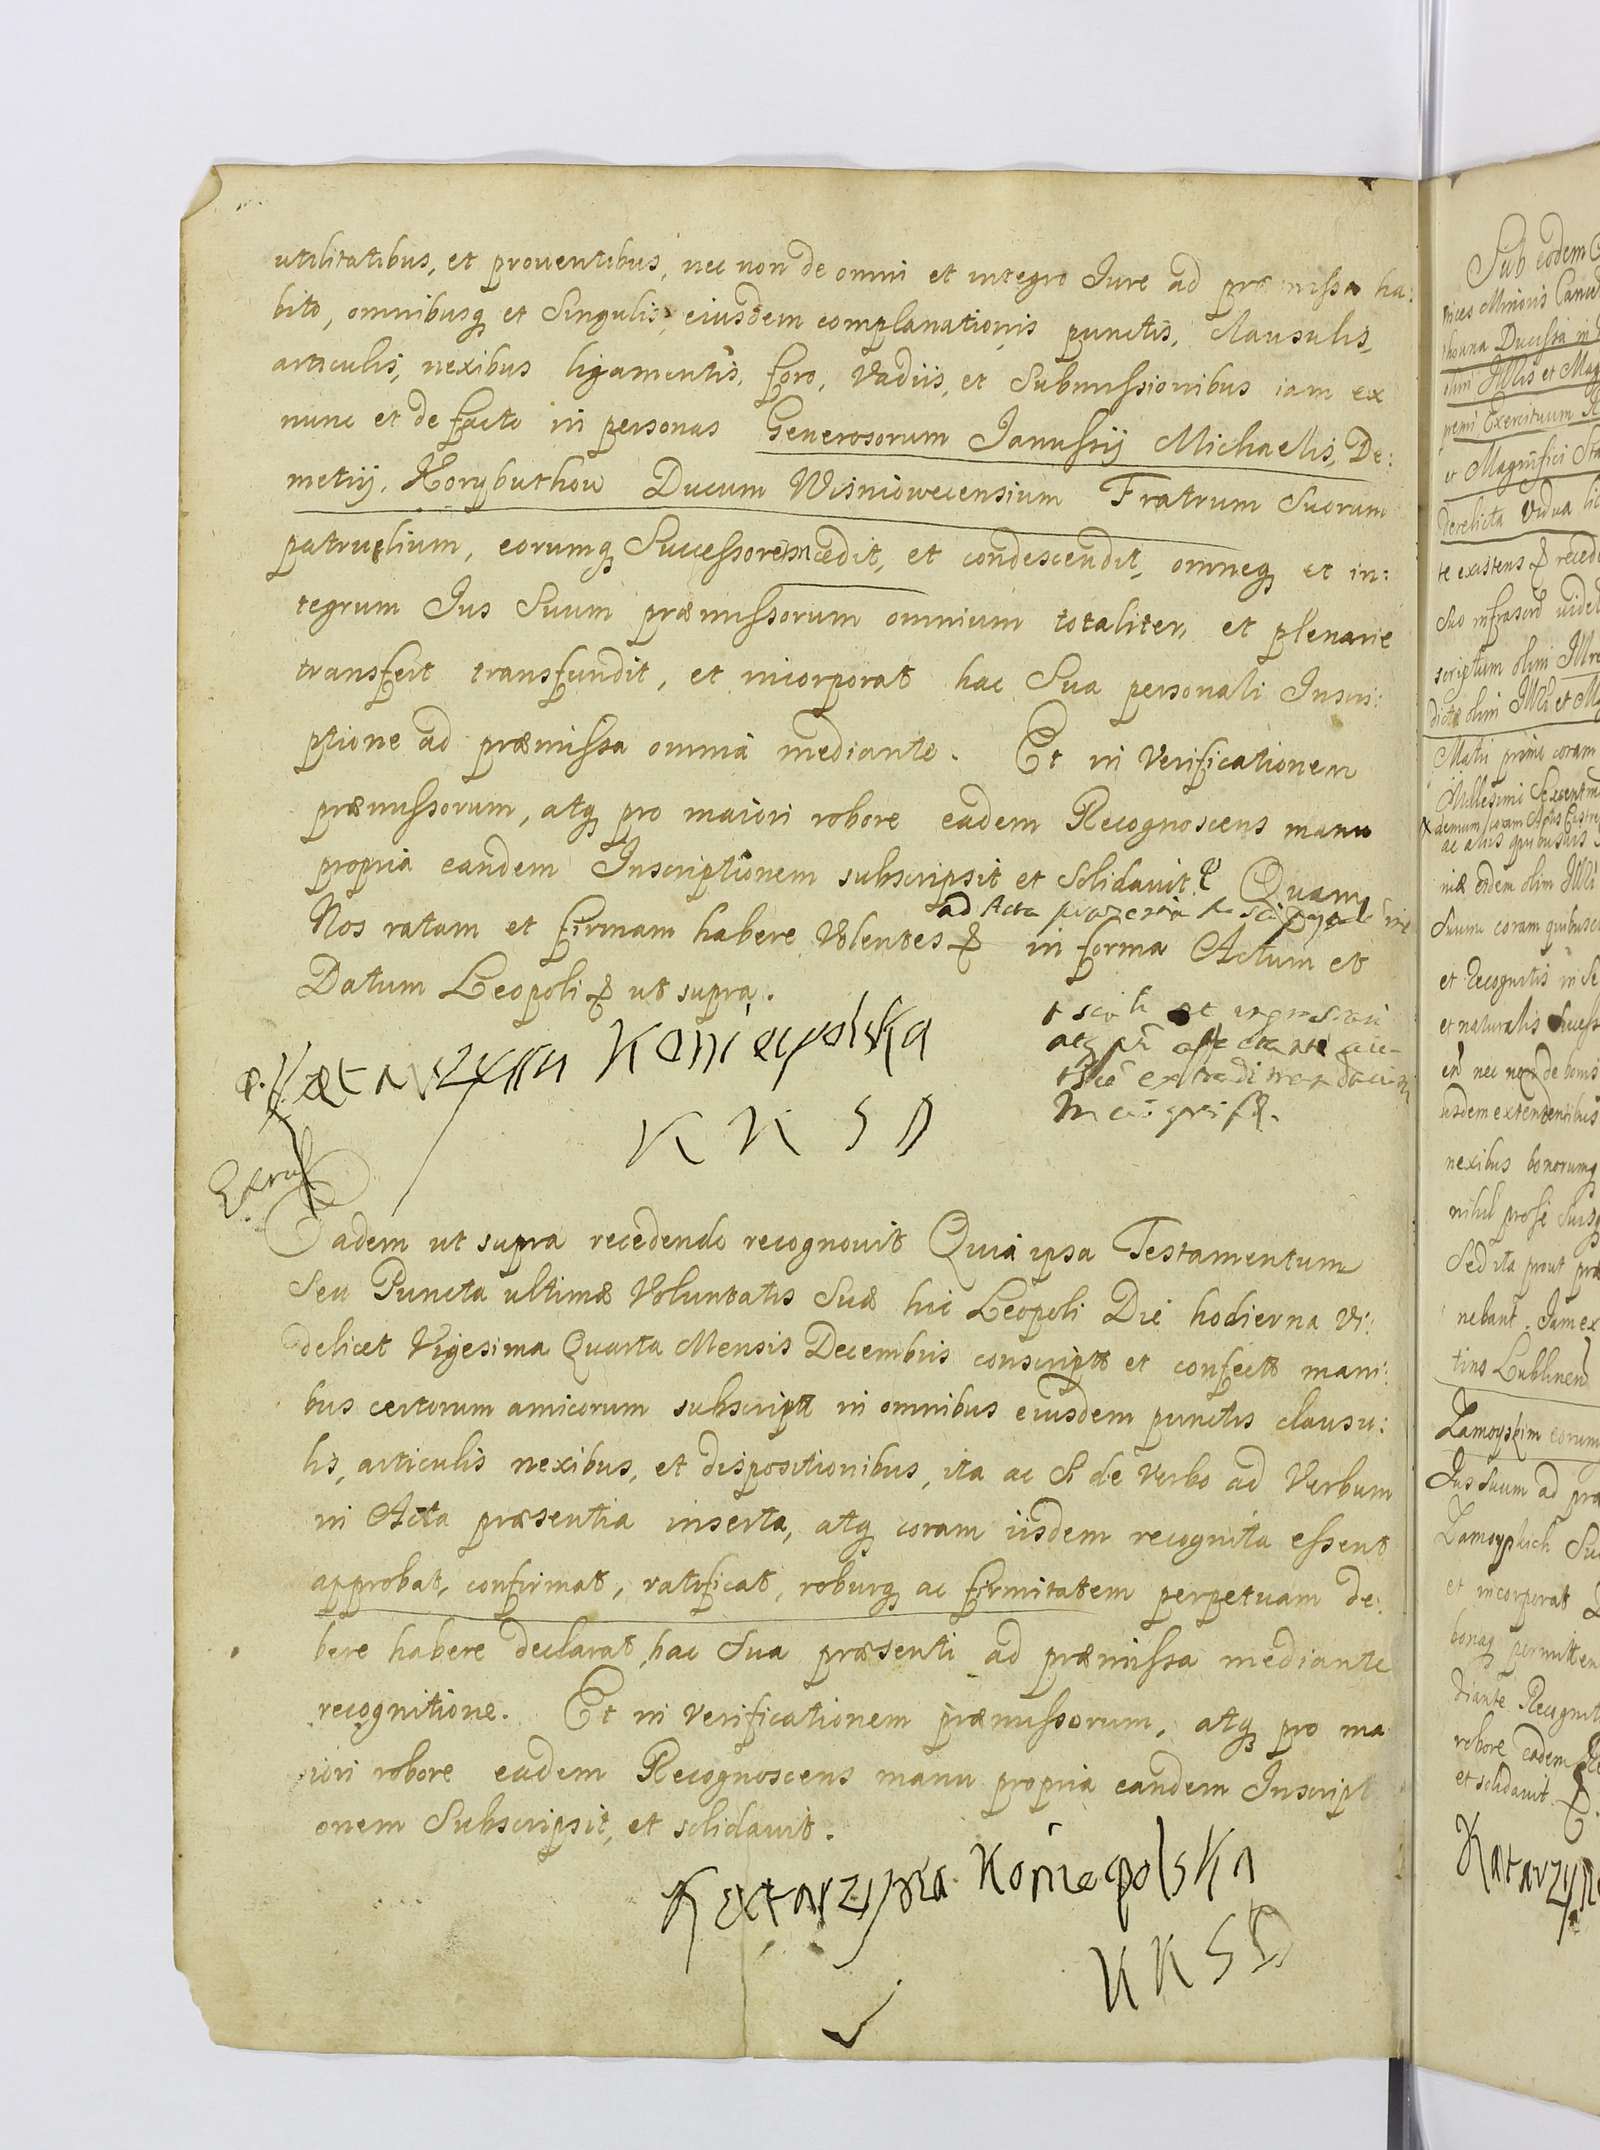 utilitatibus, et prouentibus, nec non de omni et integro Iure ad præmissa ha:
bito, omnibusq et Singulis eiusdem complanationis punctis, clausulis,
articulis, nexibus ligamentis, foro, vadiis, et Submissionibus iam ex
nunc et de facto in personas Generosorum Ianussij Michaelis, De:
metrij, Korybuthow Ducum Wisniowecensium Fratrum Suorum
patruelium, eorumq Successorem cedit, et condescendit, omneq et in:
tegrum Ius Suum præmissorum omnium totaliter, et plenarie
transfert transfundit, et incorporat hac Sua personali Inscri:
ptione ad præmissa omnia mediante. Et in Verificationem
præmissorum, atq pro maiori robore eadem Recognoscens manu
propria eandem Inscriptionem subscripsit et Solidauit. Quam
ad Acta
Nos ratam et firmam habere Volentes in forma Actum et
Datum Leopoli ut supra.
et ingrossari
Katarzyna Koniecpolska
K K S D
Eadem ut supra recedendo recognouit Quia ipsa Testamentum
Seu Puncta ultimæ Voluntatis Suæ hic Leopoli Die hodierna Vi:
delicet Vigesima Quarta Mensis Decembris conscript et confect mani:
bus certorum amicorum subscript in omnibus eiusdem punctis clausu:
lis, articulis nexibus, et dispositionibus, ita ac Si de Verbo ad Verbum
in Acta præsentia inserta, atq coram iisdem recognita essent
approbat, confirmat, ratificat, roburq ac firmitatem perpetuam de:
bere habere declarat, hac Sua præsenti ad præmissa mediante
recognitione. Et in Verificationem præmissorum, atq pro ma
iori robore eadem Recognoscens manu propria eandem Inscript
onem Subscripsit, et solidauit.
Katarzyna Koniecpolska
K K S D
Sub eodem
Ducissa in
olim Illris et Mag
et Magnifici Sta
derelicta Vidua
te existens recede
scriptum olim Illre
Matri primi coram
Millesimo Sexcentmo
ac aliis quibusuis
Suum coram quibusc
et Recognitis in Se
et naturalis Success
nec non de bonis
iisdem extendentibus
nexibus bonorumq
nihil pro se Suisq
Sed ita prout præ
nebant. Iam ex
Lublinen
Zamoyskim eorum
Ius Suum ad præ
Zamoyskich Su
et incorporat
bonaq permitten
diante Recognit
robore eadem Re
et solidauit.
Katarzyn